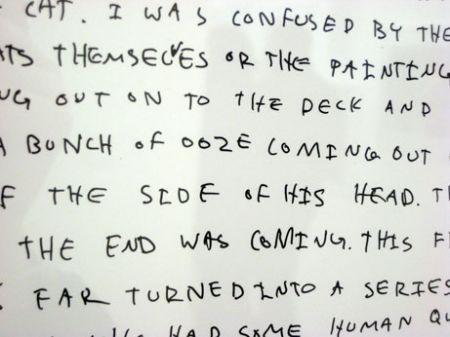 CAT. I WAS CONFUSED BY THE
THEMSELVES OR THE PAINTING
OUT ON TO THE DECK AND
A BUNCH OF OOZE COMING OUT
THE SIDE OF HIS HEAD.
THE END WAS COMING. THIS
EAR TURNED INTO A SERIES
HAD SOME HUMAN